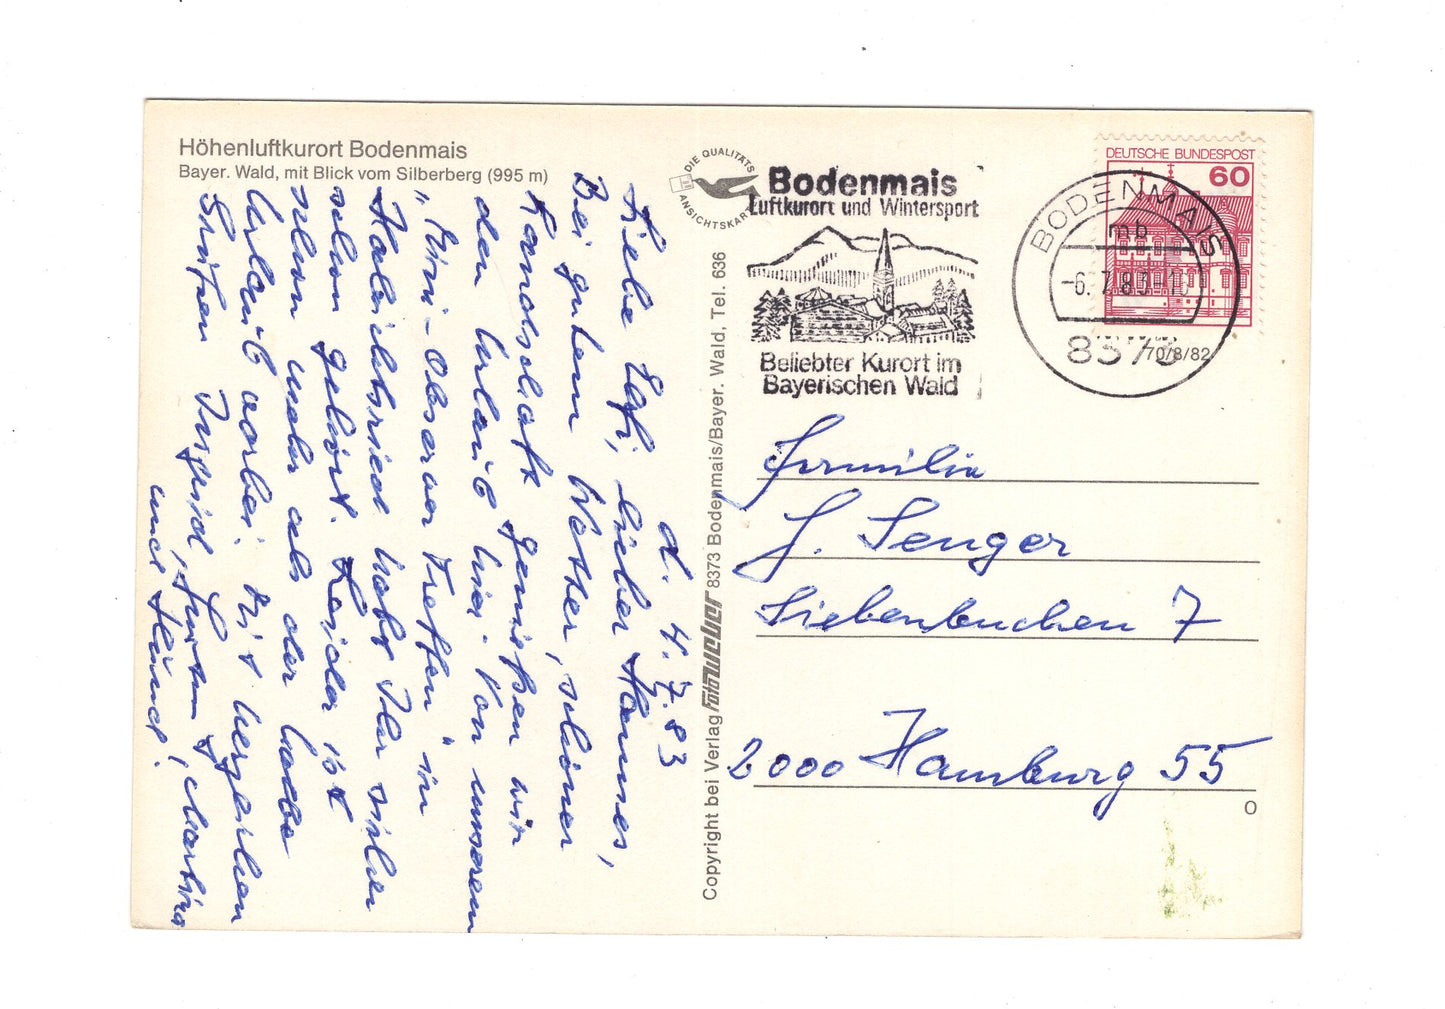 Höhenluftkurort Bodenmais
Bayer. Wald, mit Blick vom Silberberg (995 m)
d. 4.7.83
Liebe Elfi, lieber Hannes,
Bei gutem Wetter, schöner
Landschaft genießen wir
den Urlaub hier. Von unserem
„Mini-Obsever Treffen" in
Habichtsried habt Ihr sicher
schon gehört. Leider ist
schon mehr als der halbe
Urlaub vorbei. Mit herzlichen
Grüßen Ingrid,
und
DIE QUALITÄTS
ANSICHTSKARTE
Copyright bei Verlag foto weber 8373 Bodenmais/Bayer. Wald, Tel. 636
Bodenmais
Luftkurort und Wintersport
Beliebter Kurort im
Bayerischen Wald
DEUTSCHE BUNDESPOST
60
BODENMAIS
mb
-6.7.83-16
8373
70/8/82
Familie
J. Senger
Siebenbuchen 7
2000 Hamburg 55
O